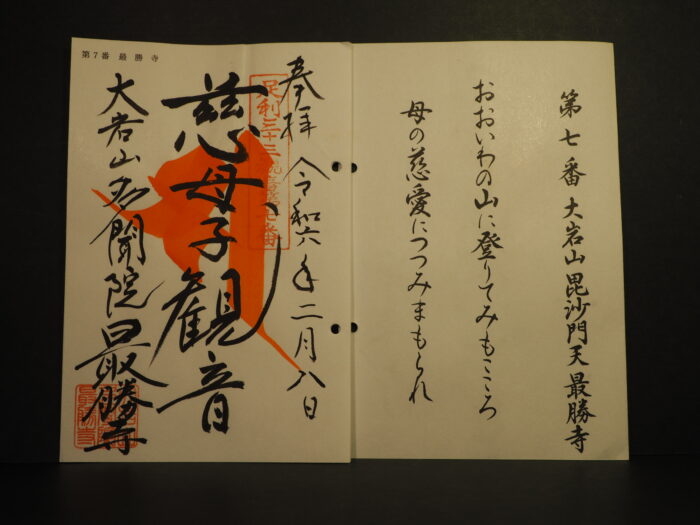 第七番 大岩山毘沙門天 最勝寺
おおいわの山に登りてみもこころ
母の慈愛につつみまもられ
奉拝 令和六年二月八日
足利三十三観音霊場七番
慈母子観音
大岩山多聞院最勝寺
第7番 最勝寺